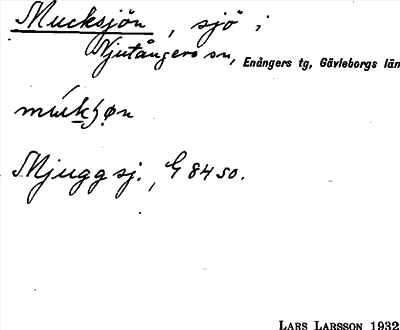 Mucksjön, sjö i
Njutångers sn, Enångers tg, Gävleborgs län
Mjuggsj., G 8450.
LARS LARSSON 1932